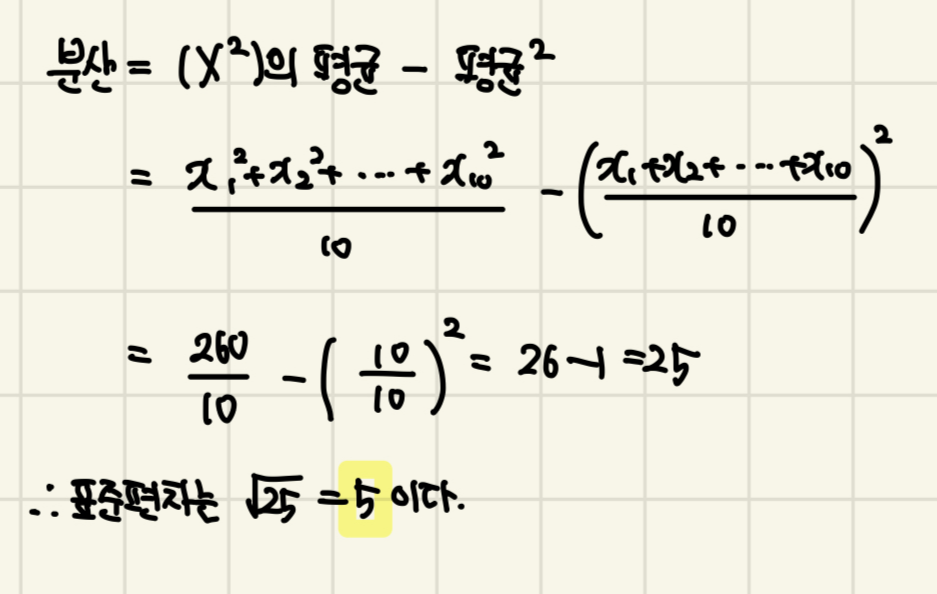 분산 = (X²)의 평균 - 평균²
= x₁²+x₂²+ ··· + x₁₀² / 10 - (x₁+x₂+ ··· +x₁₀ / 10)²
= 260/10 - (10/10)² = 26-1 =25
∴ 표준편차는 √25 = 5 이다.